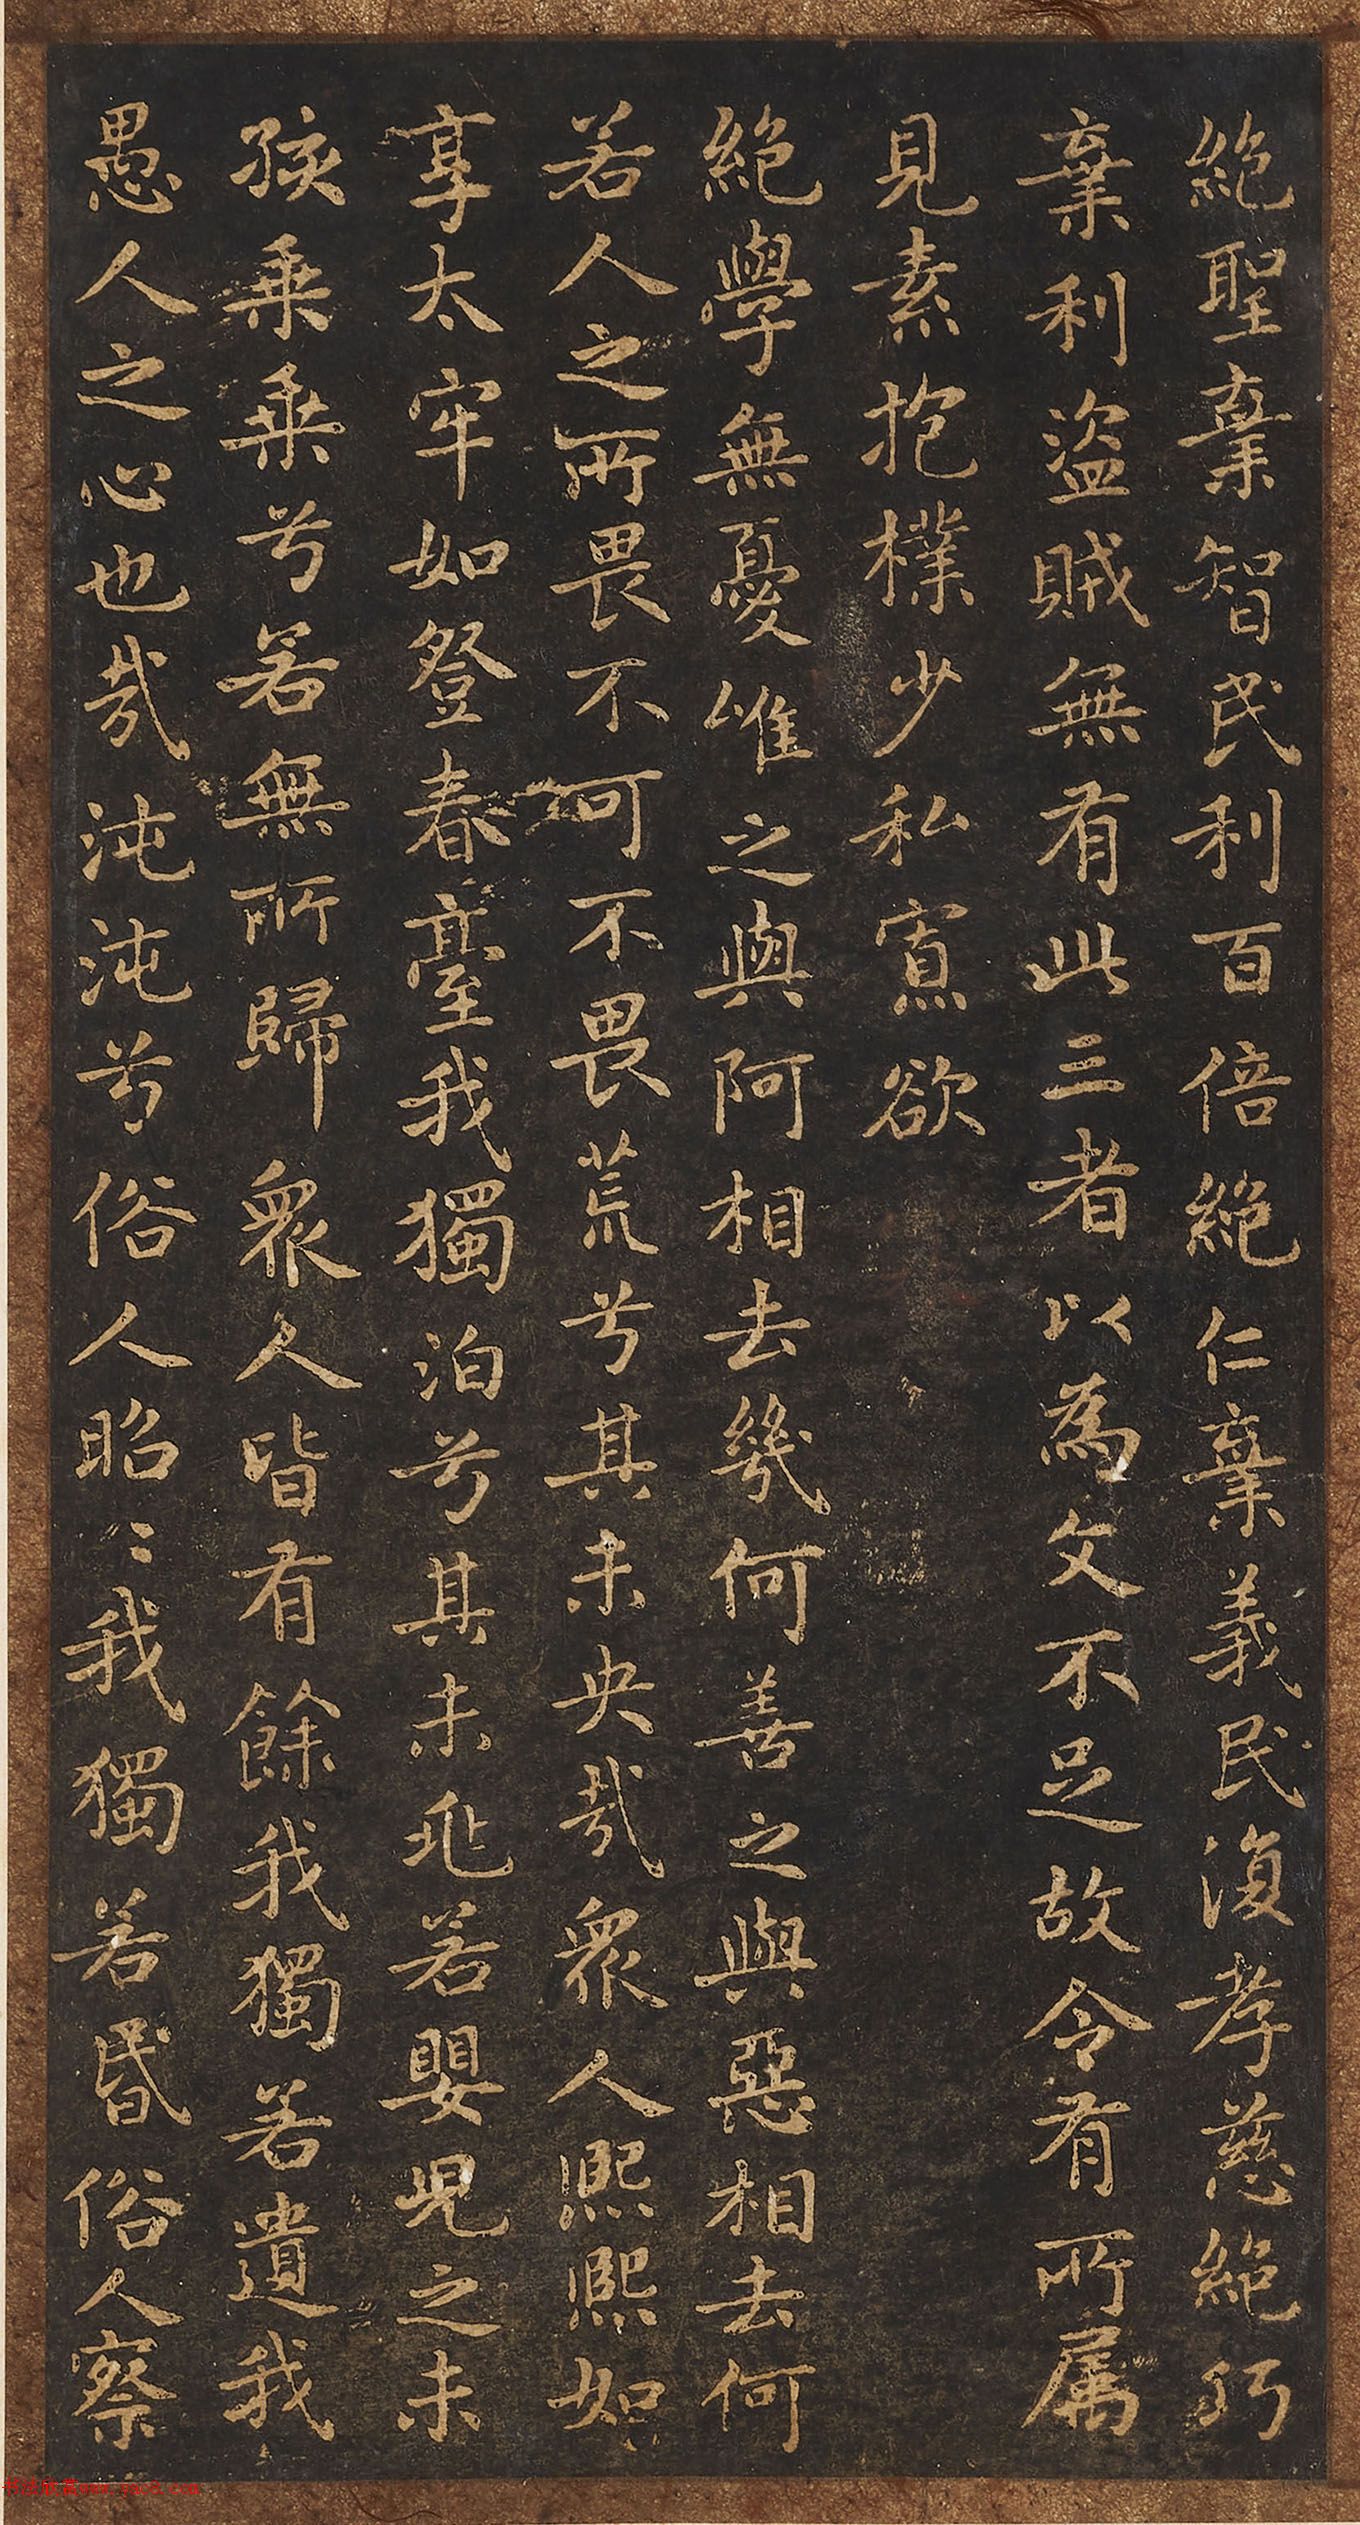 絶聖棄智民利百倍絶仁棄義民復孝慈絶巧
棄利盜賊無有此三者以為文不足故令有所属
見素抱樸少私寡欲
絶學無憂唯之與阿相去幾何善之與惡相去何
若人之所畏不可不畏荒兮其未央哉衆人熙熙如
享太牢如登春臺我獨泊兮其未兆若嬰児之未
孩乗乗兮若無所歸衆人皆有餘我獨若遺我
愚人之心也哉沌沌兮俗人昭〻我獨若昏俗人察